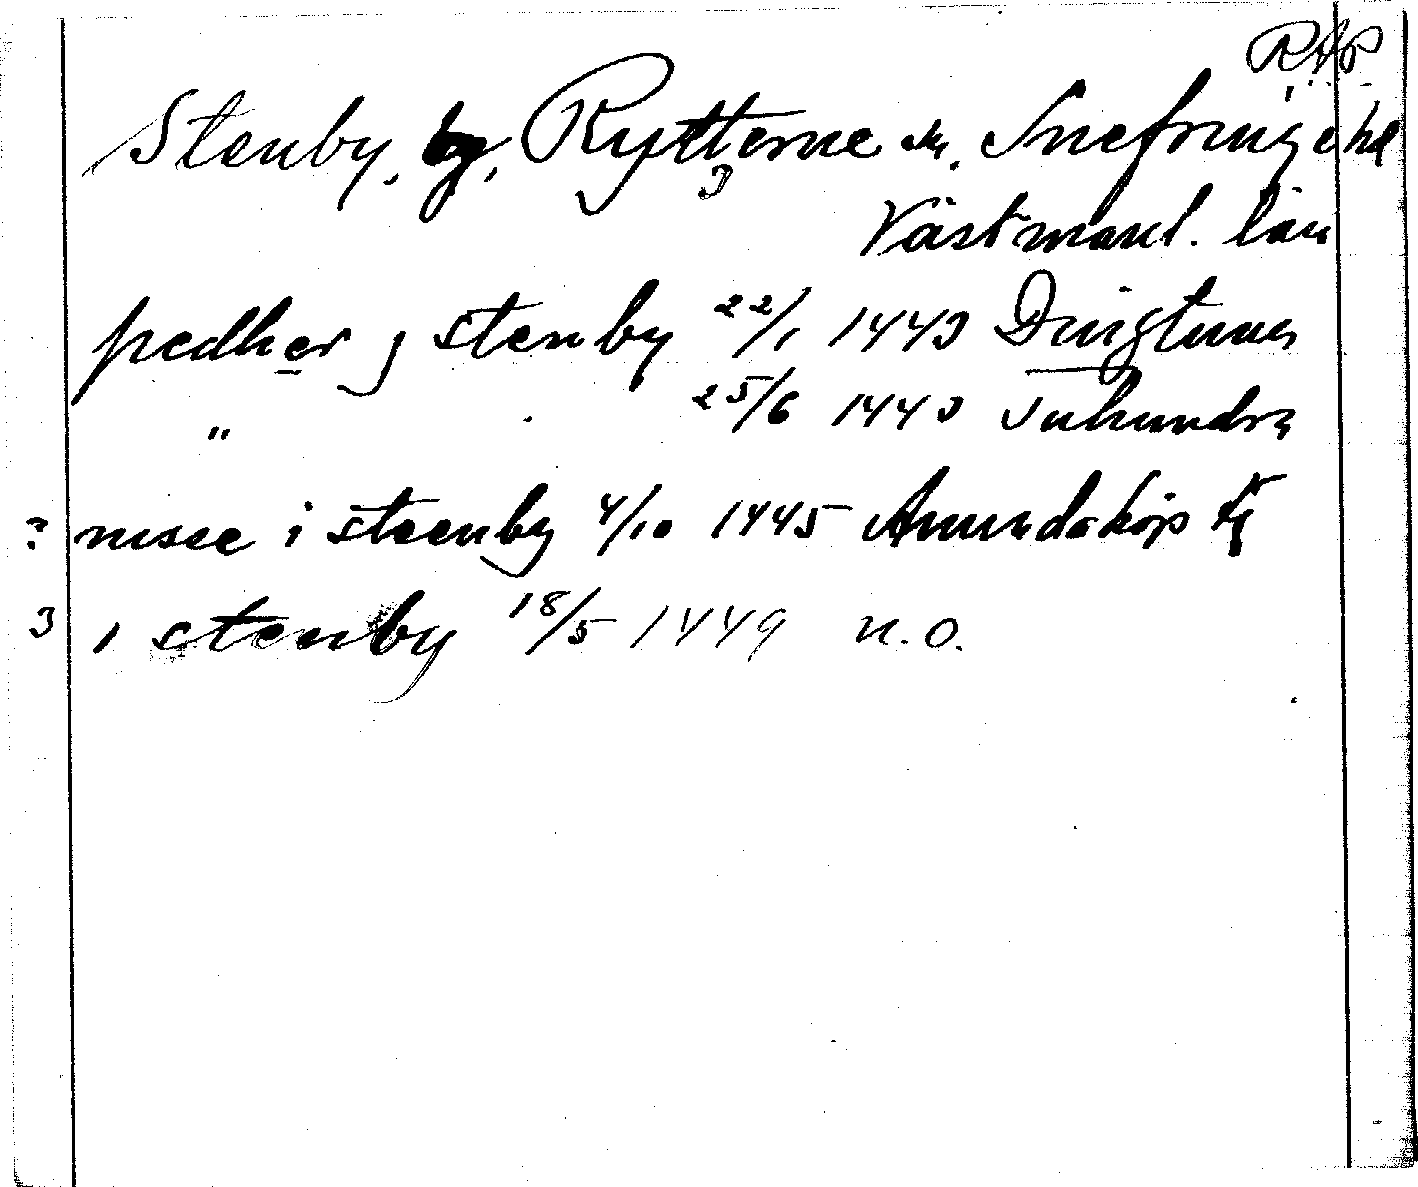 RAP
Stenby, by, Rytterne sn. Snefringe hd
Västmanl. län
pedher j stenby 22/1 1443 Dingtuna
" 25/6 1443 Tuhundra
? nisse i steenby 4/10 1445 Amundaköp
? i stenby 18/5 1449 n.o.